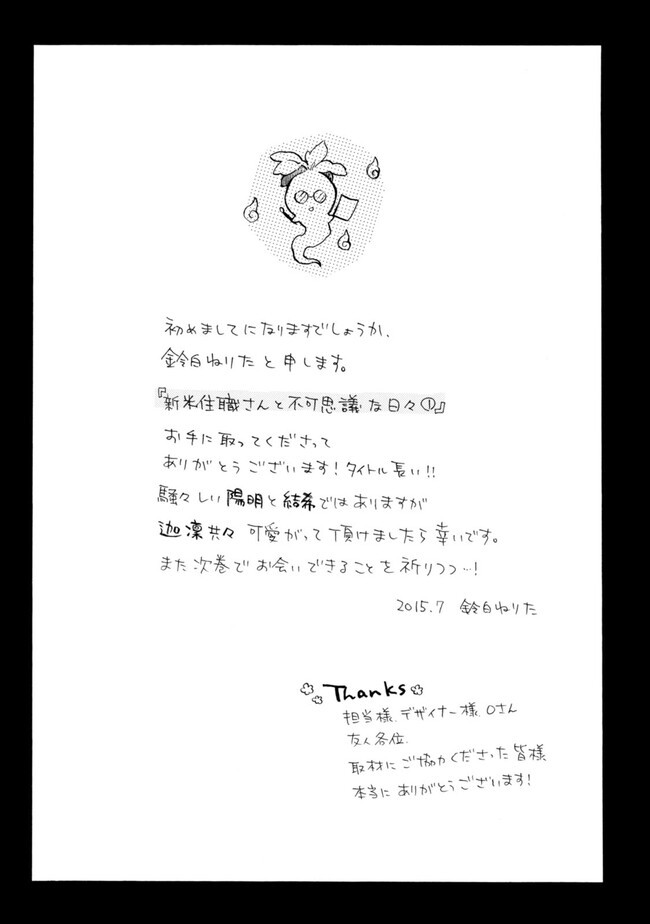 初めましてになりますでしょうか、
鈴白ねりたと申します。
『新米住職さんと不可思議な日々①』
お手に取ってくださって
ありがとうございます!タイトル長い!!
騒々しい陽明と結希ではありますが
迦凜共々可愛がって頂けましたら幸いです。
また次巻でお会いできることを祈りつつ…!
2015.7 鈴白ねりた
Thanks
担当様.デザイナー様.Oさん
友人各位.
取材にご協力くださった皆様
本当にありがとうございます!